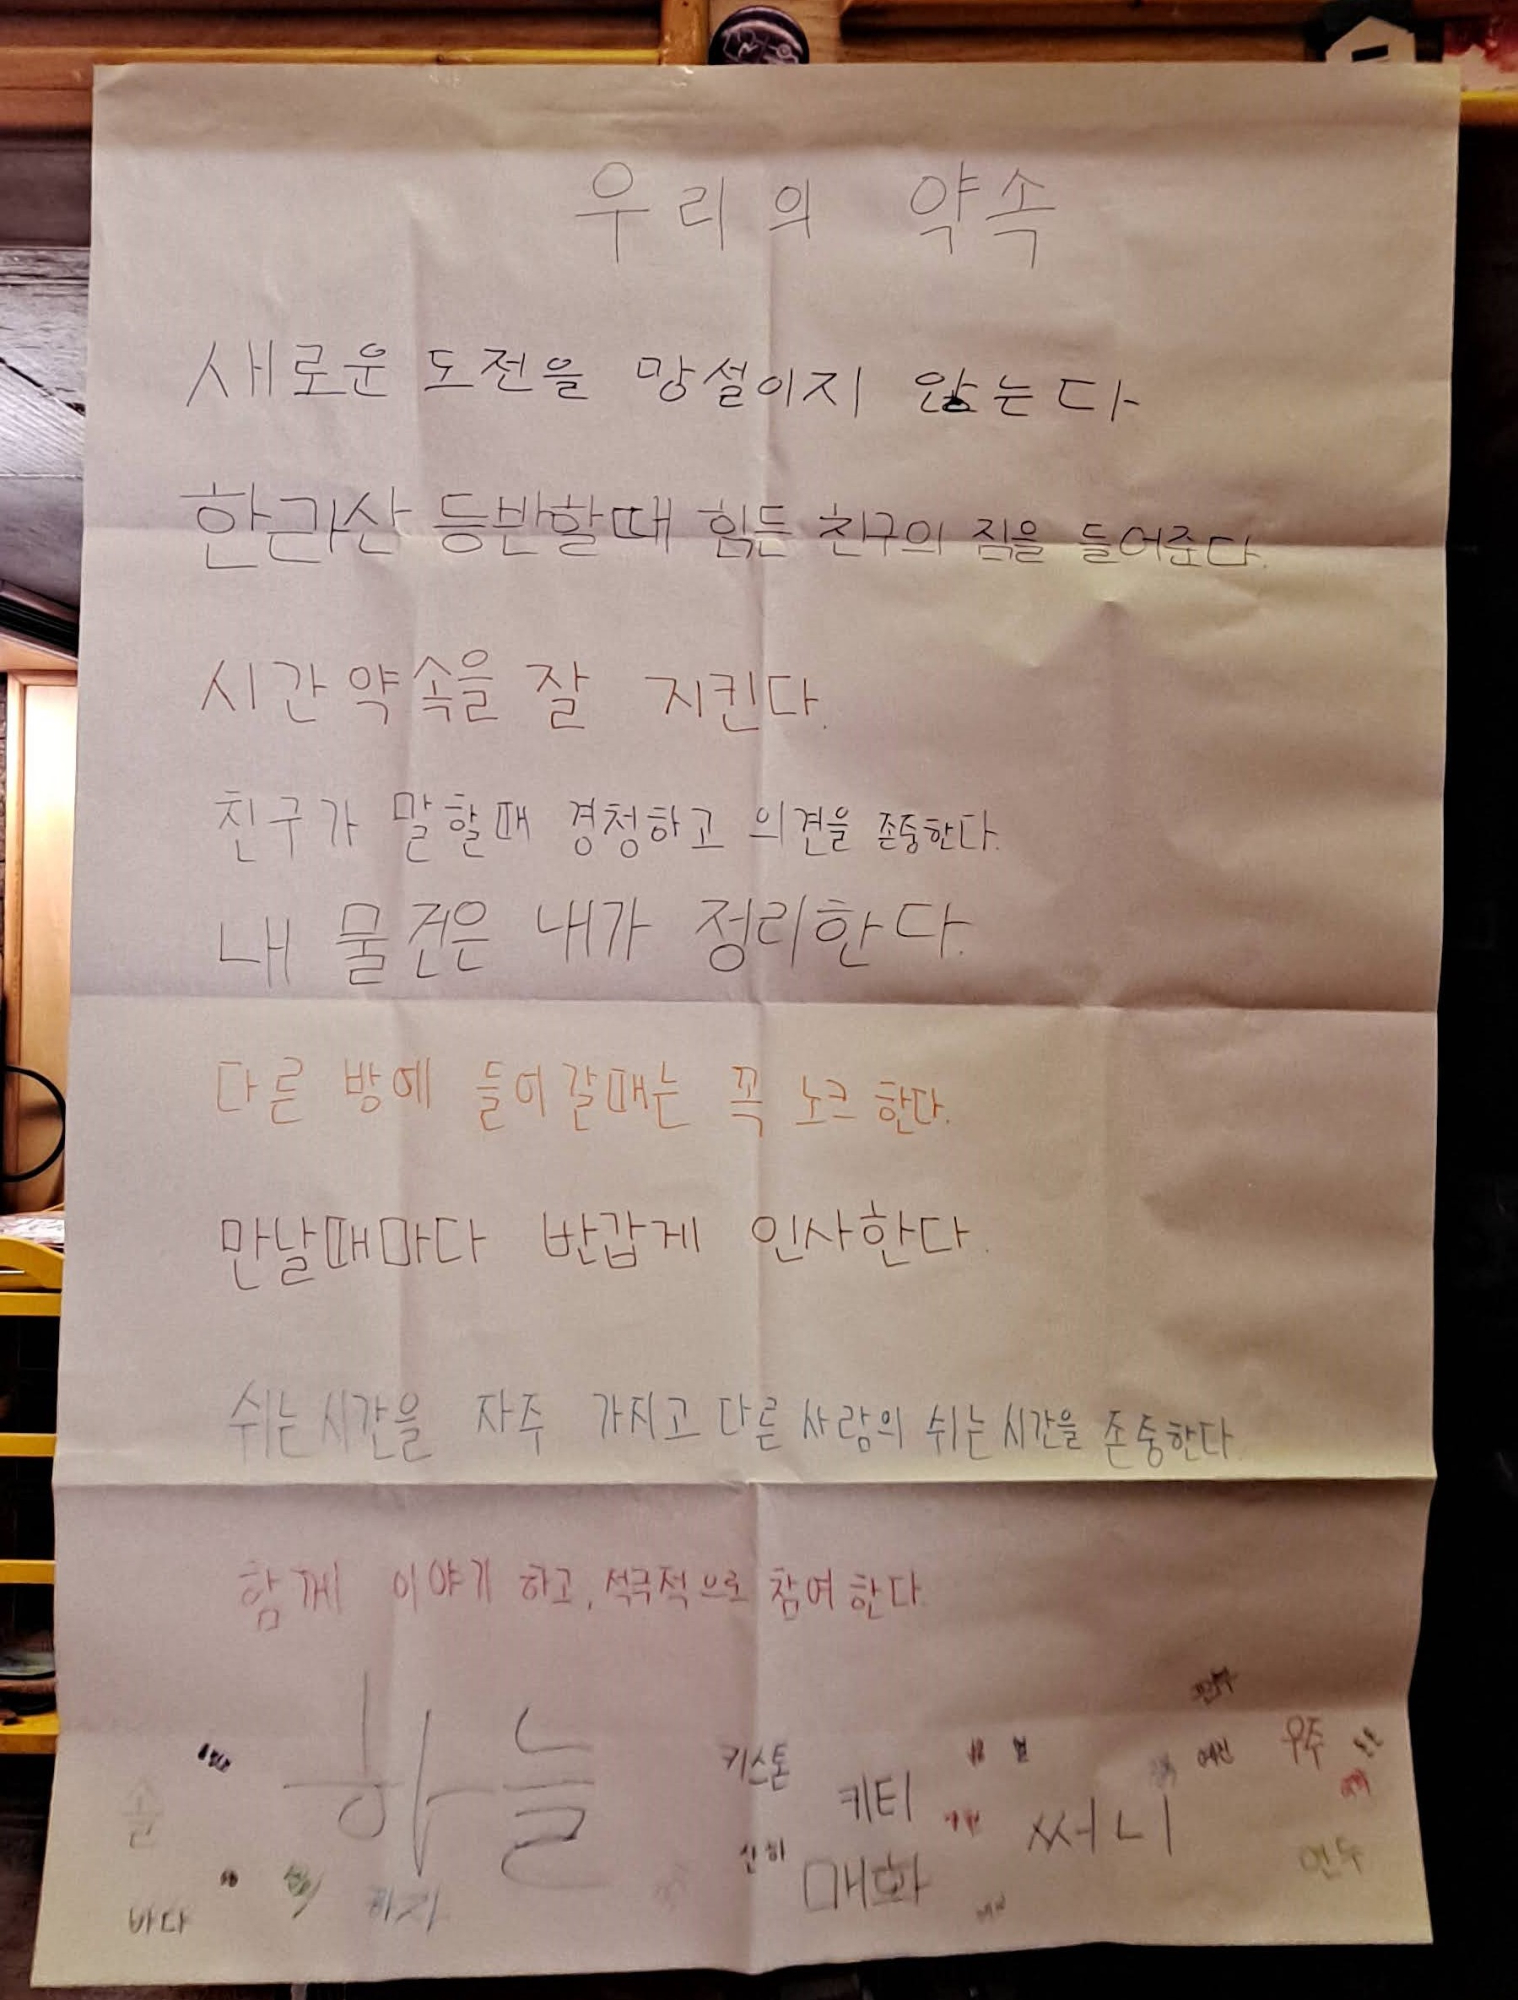 우리의 약속
새로운 도전을 망설이지 않는다
한라산 등반할때 힘든 친구의 짐을 들어준다.
시간약속을 잘 지킨다.
친구가 말할때 경청하고 의견을 존중한다.
내 물건은 내가 정리한다.
다른 방에 들어갈때는 꼭 노크한다.
만날때마다 반갑게 인사한다.
쉬는시간을 자주 가지고 다른 사람의 쉬는시간을 존중한다.
함께 이야기 하고, 적극적으로 참여한다.
하늘
키스톤
우주
키티
예진
솔
써니
매화
연두
바다